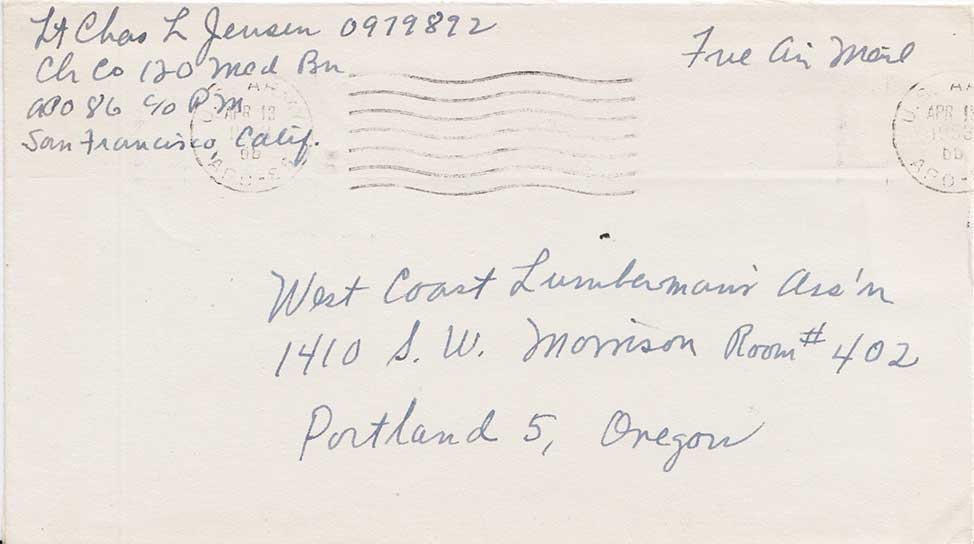 Lt Chas L Jensen 0979892
Clr Co 120 Med Bn
APO 86 c/o P M
San Francisco, Calif.
Free Air Mail
U.S. ARMY
APR 13
APO
APR 13
1953
APO
West Coast Lumberman's Ass'n
1410 S. W. Morrison Room # 402
Portland 5, Oregon